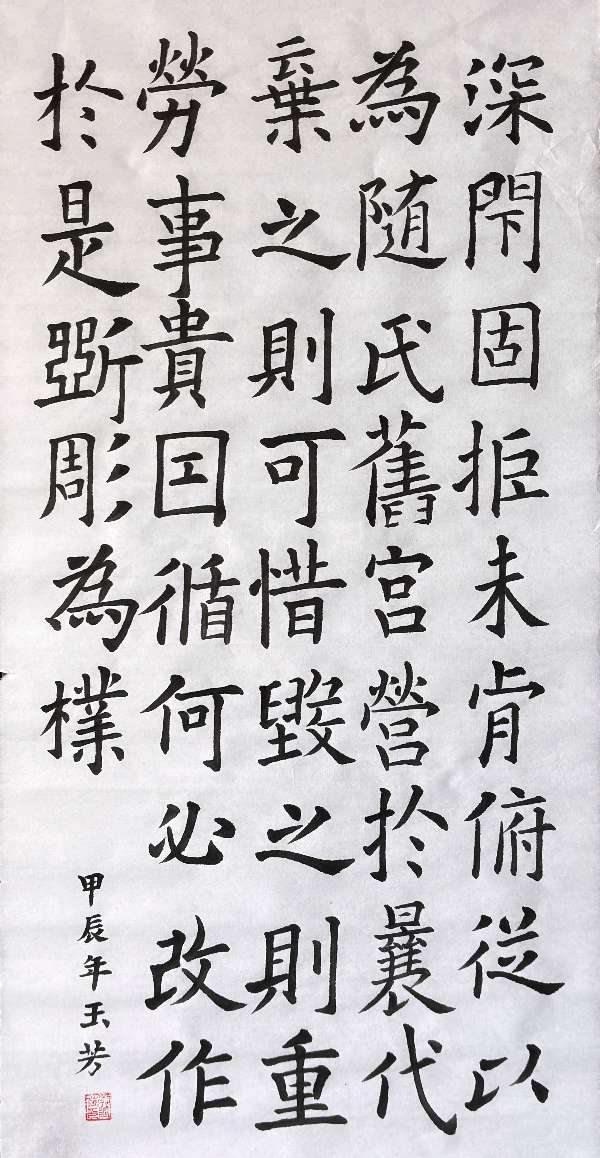 深閇固拒未肯俯從以
為隨氏舊宮營於曩代
棄之則可惜毀之則重
勞事貴因循何必改作
於是斲彫為樸
甲辰年玉芳